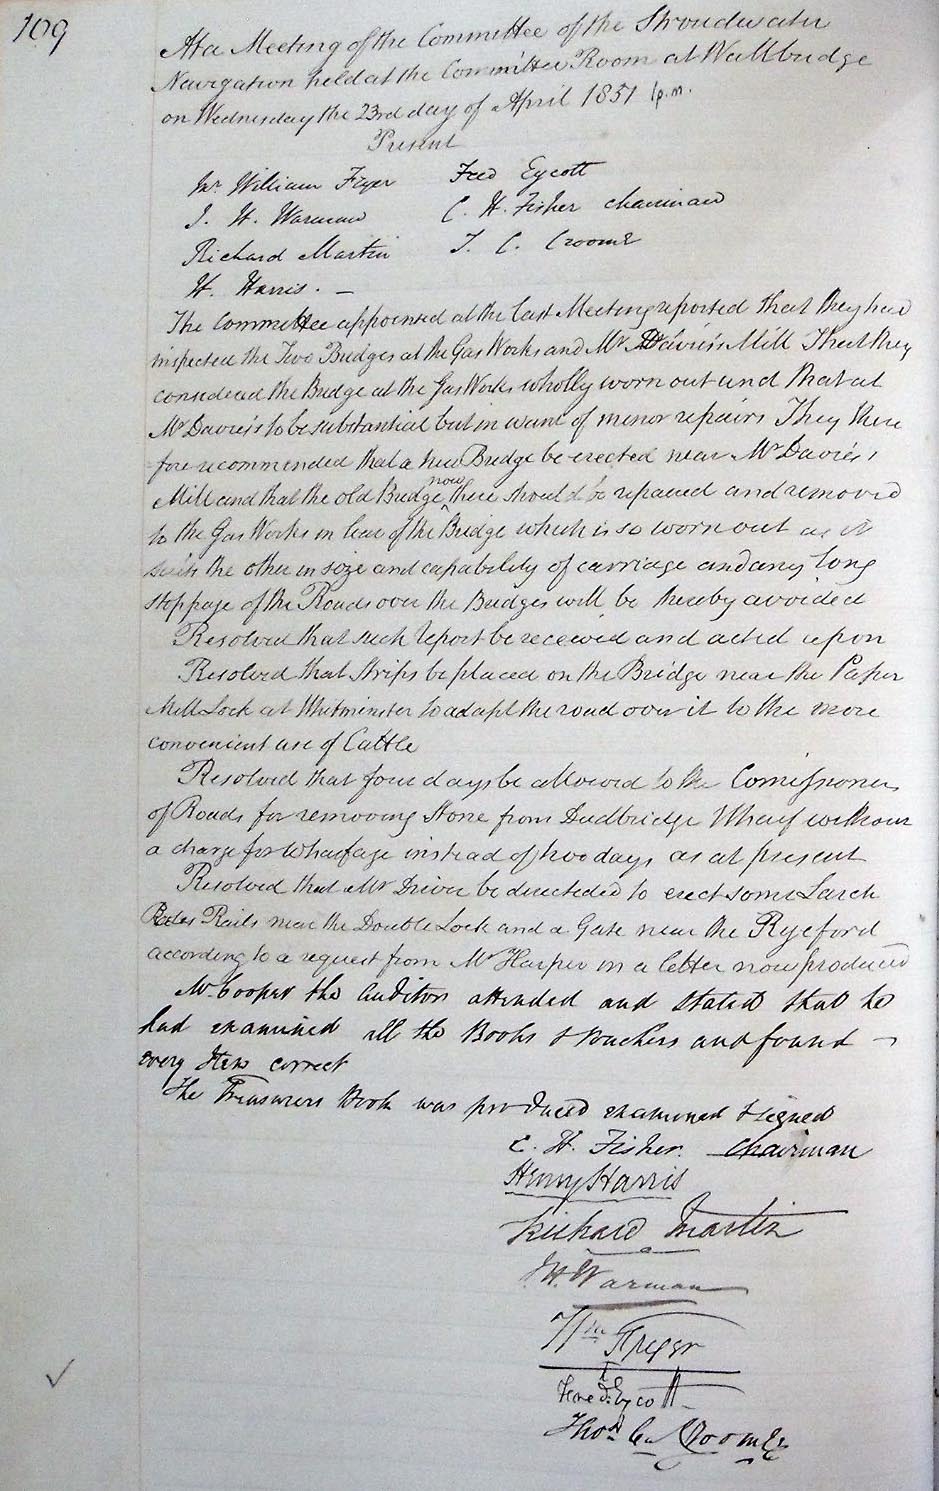 109
At a Meeting of the Committee of the Stroudwater
Navigation held at the Committee Room at Wallbridge
on Wednesday the 23rd day of April 1851 1 p.m.
Present
Mr. William Fryer Fred Eycott
J. H. Warman C. H. Fisher Chairman
Richard Martin T. C. Croome
H. Harris. —
The Committee appointed at the last Meeting reported that they had
inspected the Two Bridges at the Gas Works and Mr Davis's Mill That they
considered the Bridge at the Gas Works wholly worn out and that at
Mr Davies's to be substantial but in want of minor repairs They there
fore recommended that a new Bridge be erected near Mr Davies's
Mill and that the old Bridge now there should be repaired and removed
to the Gas Works in lieu of the Bridge which is so worn out as it
suits the other in size and capability of carriage and any long
stoppage of the Roads over the Bridges will be thereby avoided
Resolved that such report be received and acted upon
Resolved that strips be placed on the Bridge near the Paper
Mill Lock at Whitminster to adapt the road over it to the more
convenient use of Cattle
Resolved that four days be allowed to the Comissioners
of Roads for removing Stone from Dudbridge Wharf without
a charge for Wharfage instead of two days as at present
Resolved that Mr Driver be directeded to erect some Larch
Rails near the Double Lock and a Gate near the Ryeford
according to a request from Mr Harper in a letter now produced
Mr Cooper the Auditor attended and stated that he
had examined all the Books & Vouchers and found
every Item correct
The Treasurers Book was produced examined & signed
C. H. Fisher. Chairman
Henry Harris
Richard Martin
J. H. Warman
Wm Fryer
Fred. Eycott
Thos. C. Croome